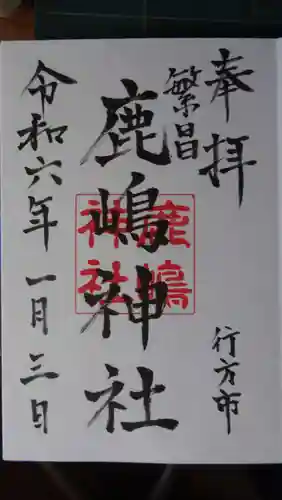 奉拝
繁昌
鹿嶋神社
鹿嶋
神社
行方市
令和六年一月三日